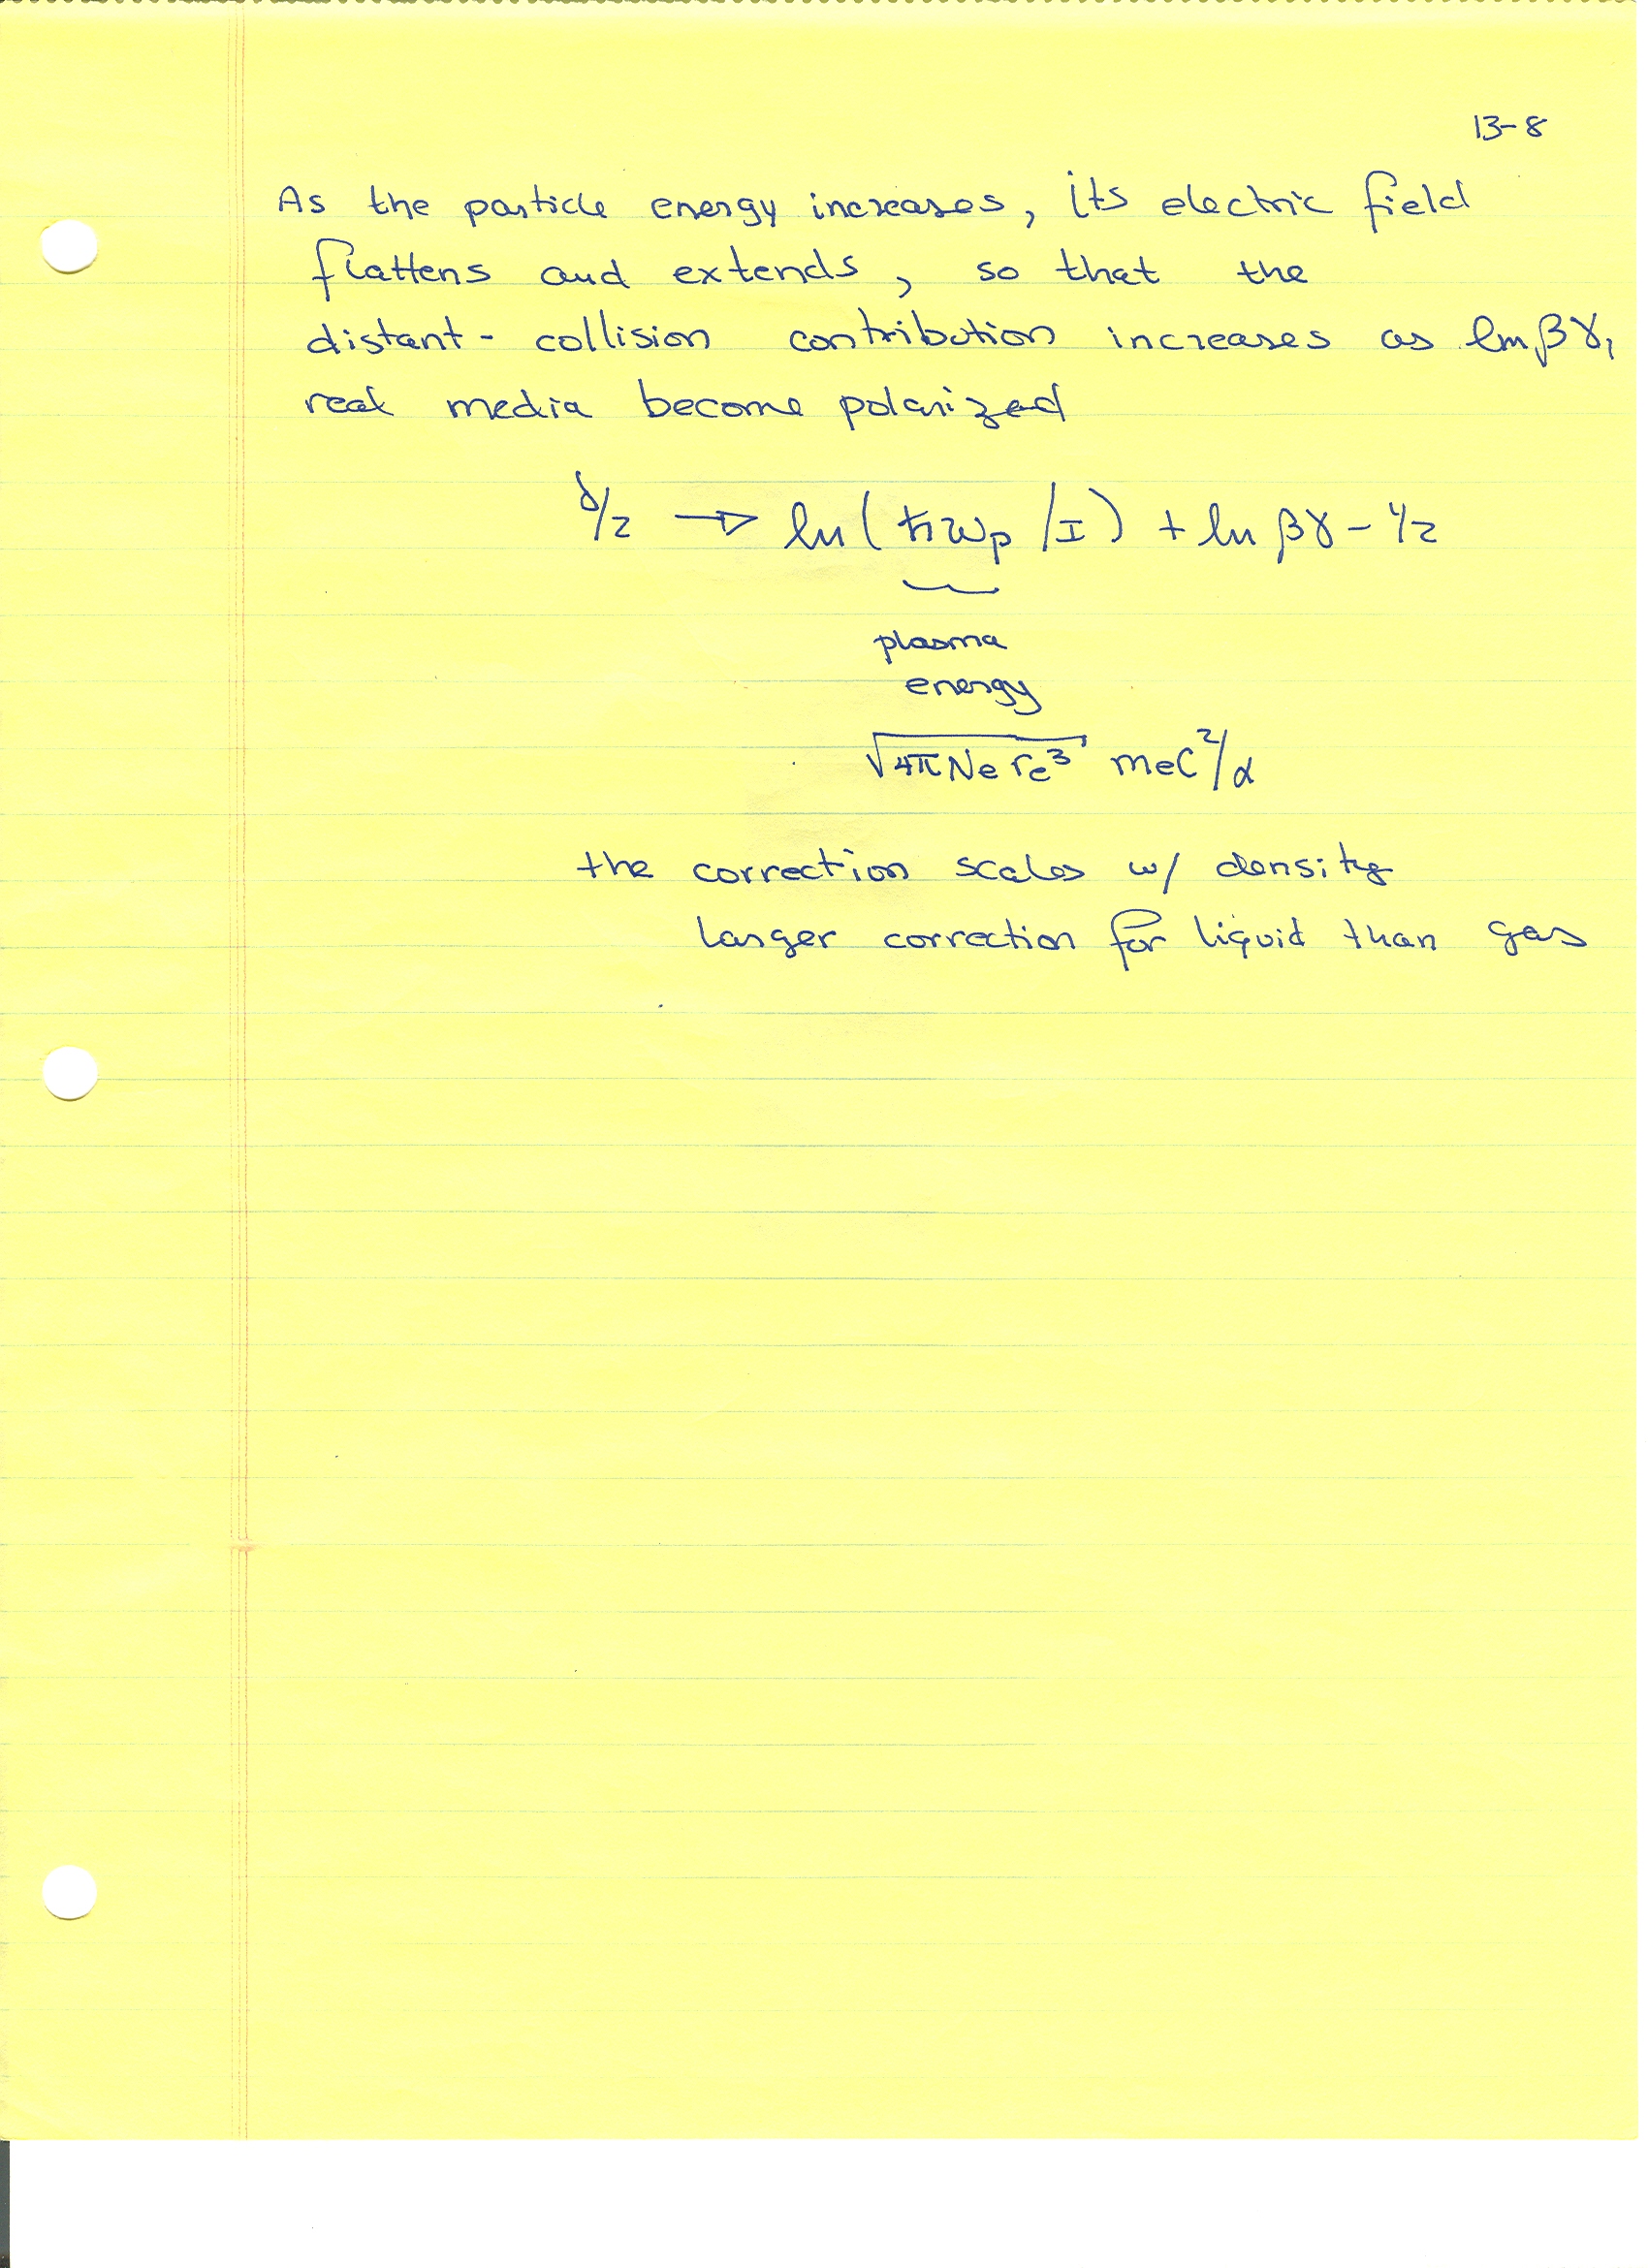 13-8
As the particle energy increases, its electric field
flattens and extends, so that the
distant-collision contribution increases as ln βγ,
real media become polarized
δ/2 → ln(ħωp/I) + ln βγ - 1/2
plasma
energy
√4πNe re³ mec²/α
the correction scales w/ density
larger correction for liquid than gas